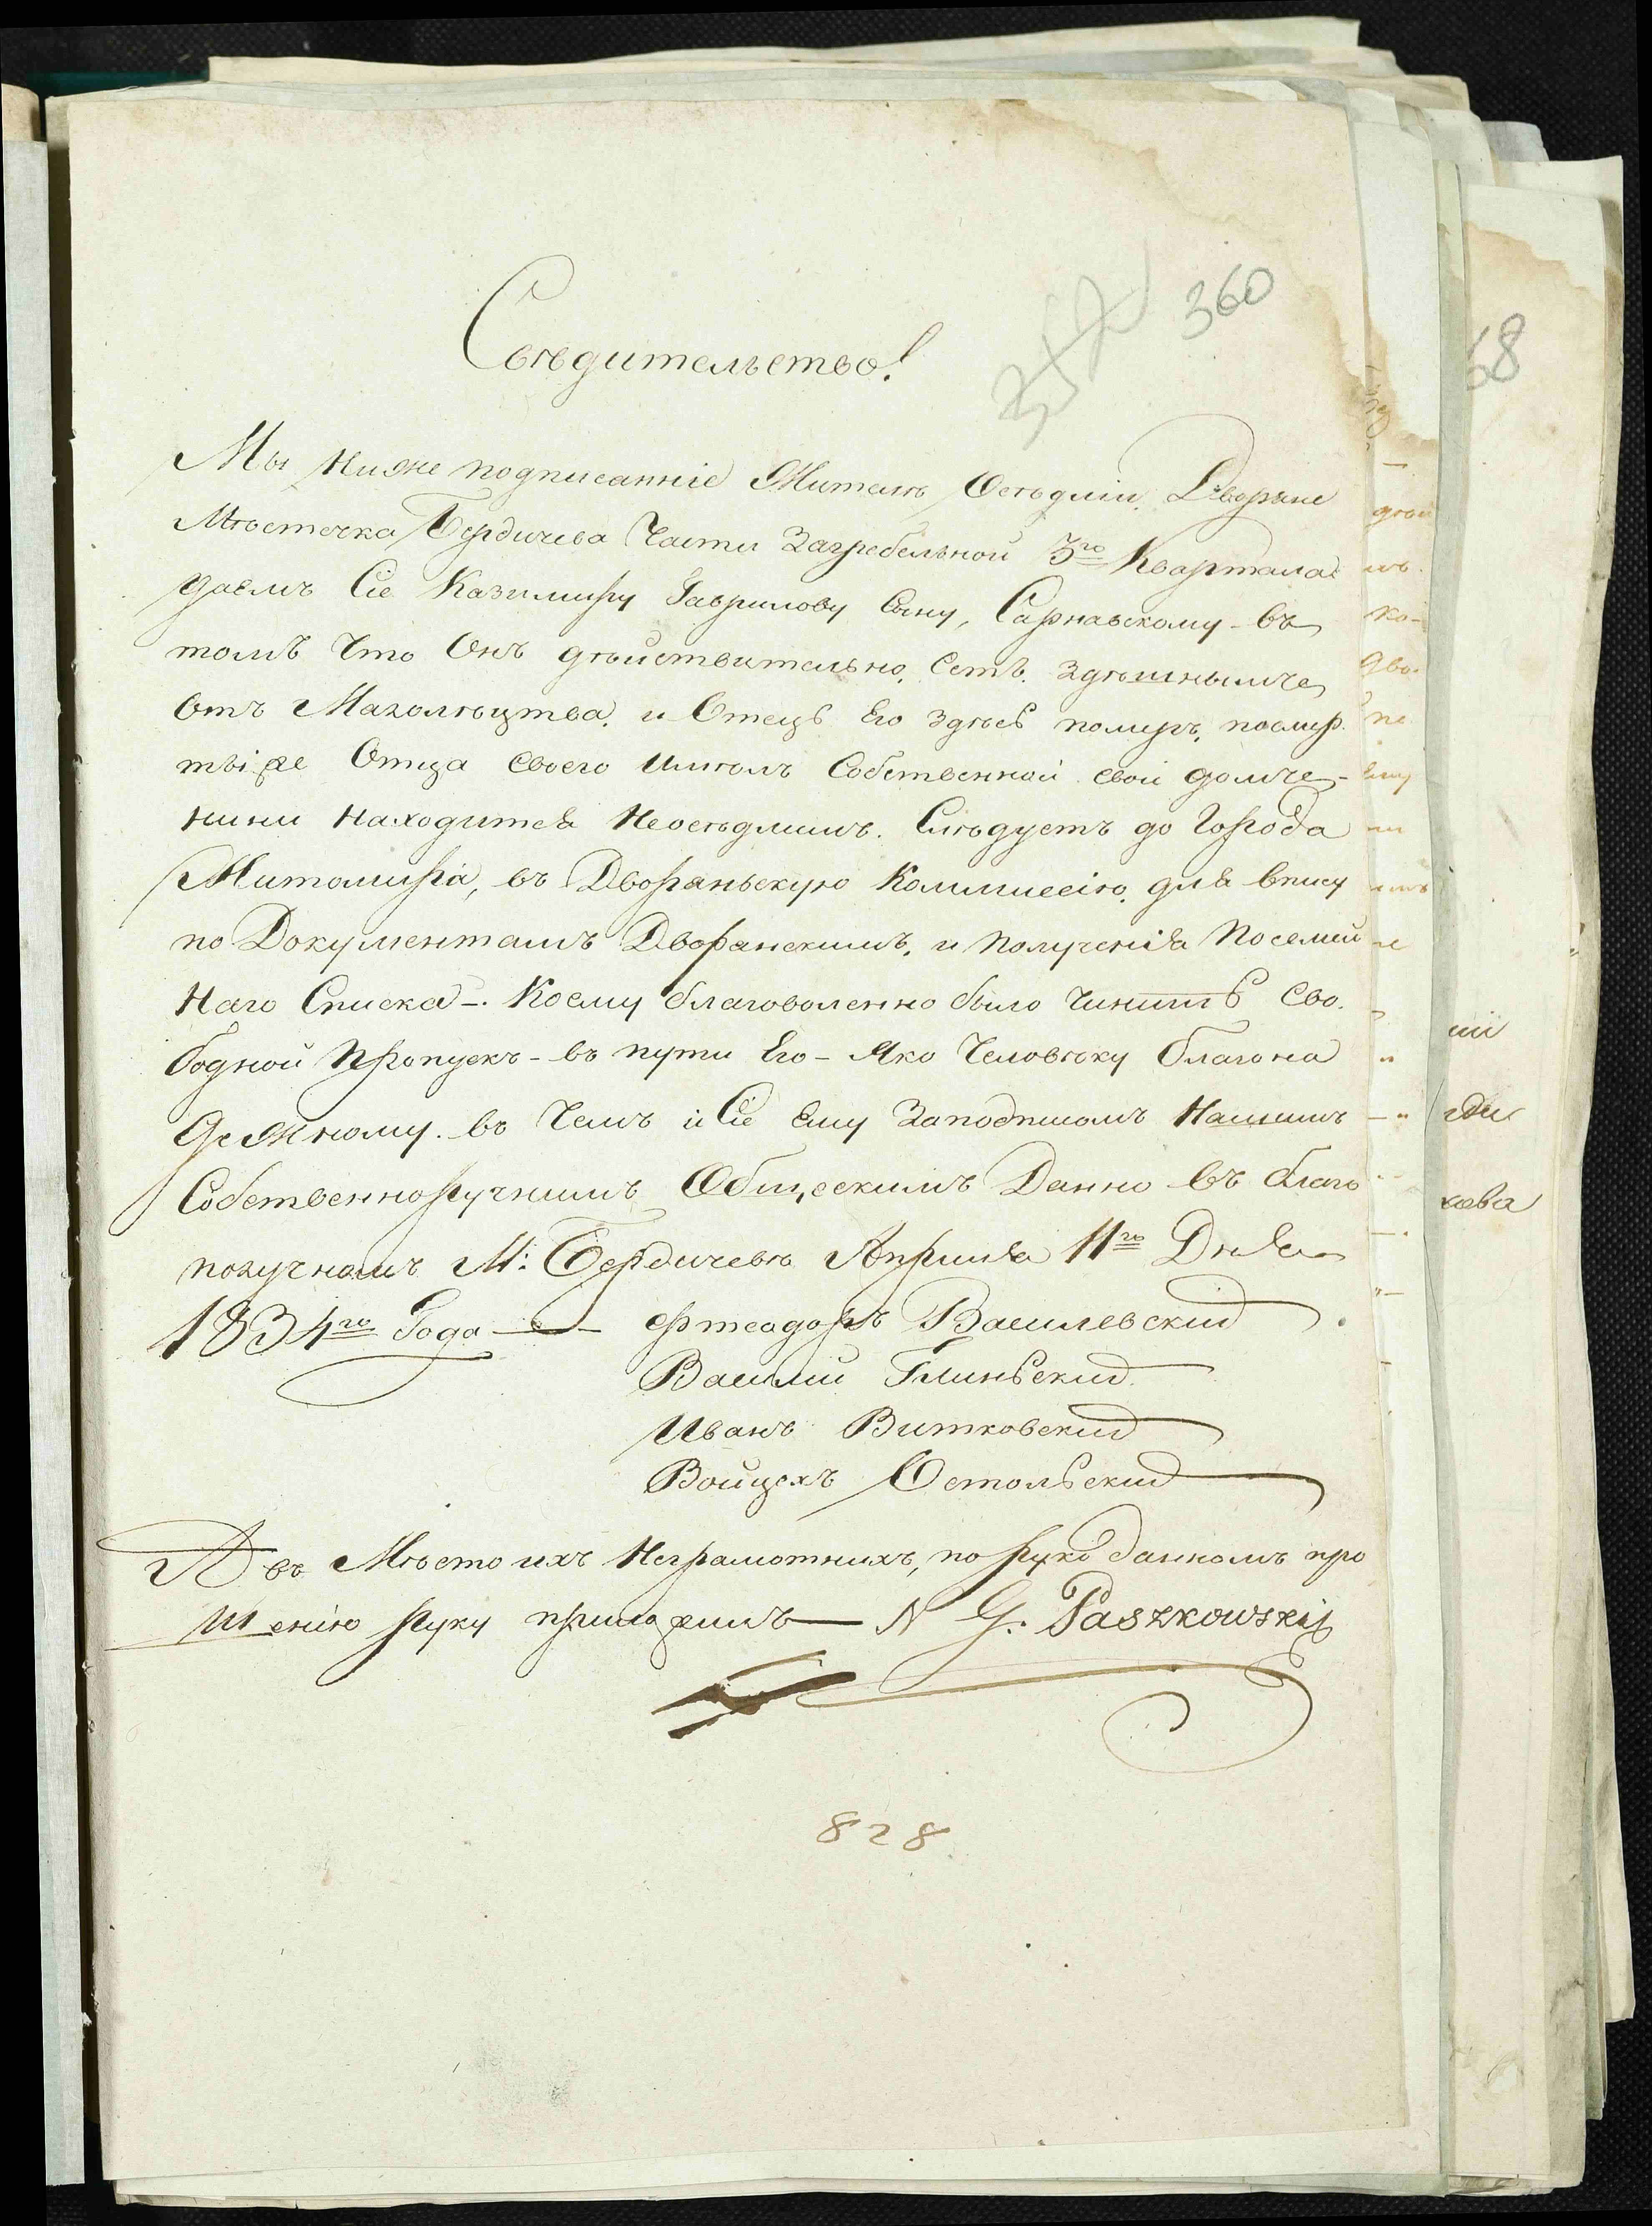 360
Свѣдительство!
Мы ниже подписанніе Жителѣ Осѣдліи, Дворяне
Мѣстечка Бердичева Части Загребельной 3го Квартала
даемъ Сіе Казимиру Гаврилову Сыну, Сарнавскому - въ
томъ Что Онъ дѣйствительно, Есть. здѣшнымъ
Отъ Махолѣцтва. и Отецъ Его здѣсь померъ, посмер.
тьі же Отца Своего Имѣлъ Собственной свой домъ -
нини Находится Неосѣдлимъ. Слѣдуетъ до Города
Житомира, въ Дворанскую Коммиссію, для впису
по Документамъ Дворанскимъ, и Полученія Посемей
Наго Списка -. Коему благоволенно било Чинить Сво.
бодной Пропускъ - въ пути Его - Яко Человѣку Благона
Дежному. въ Чемъ и Сіе Ему Заподписомъ Нашимъ
Собственноручнимъ Общескимъ Данно въ благо
получномъ М: Бердичевѣ Априля 11го Дня
1834го Года — Фтеодоръ Василевский
Василий Глинский
Иванъ Витковский
Войцехъ Остольский
А въ Мѣсто ихъ Неграмотнихъ, по рукоданномъ про
шенію руку приложилъ — N G. Paszkowskij
828
68